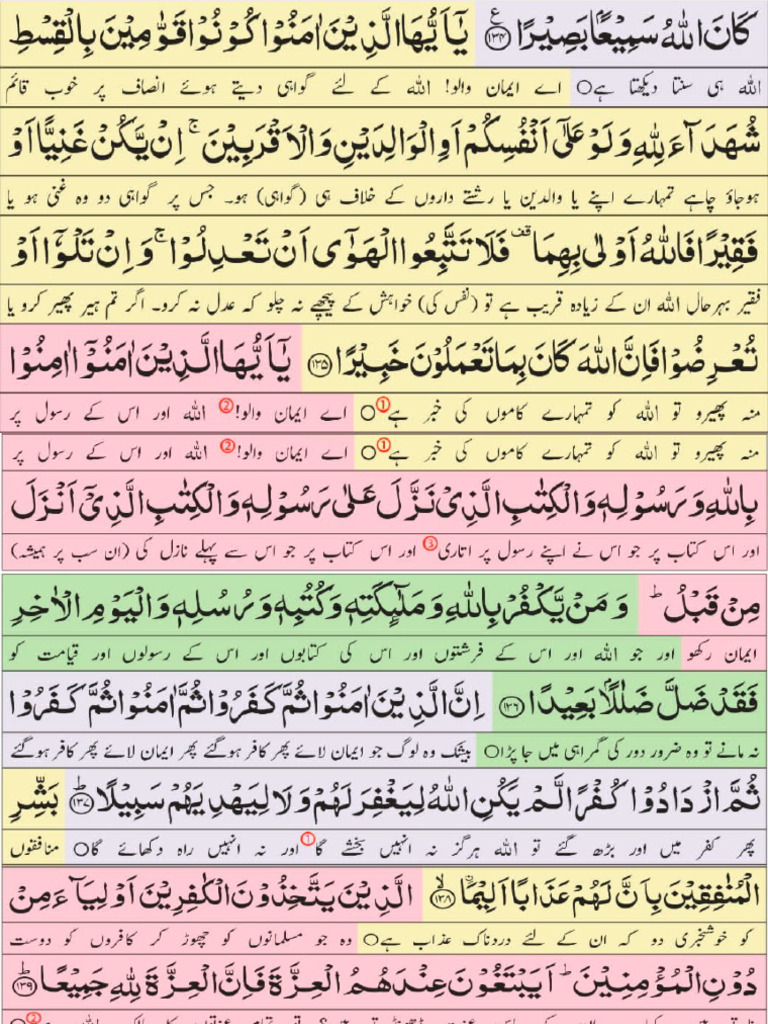 كَانَ اللّٰهُ سَمِيْعًۢا بَصِيْرًا ﴿۱۳۴﴾ ع يٰۤاَيُّهَا الَّذِيْنَ اٰمَنُوْا كُوْنُوْا قَوّٰمِيْنَ بِالْقِسْطِ
اللہ ہی سنتا دیکھتا ہے○ اے ایمان والو! اللہ کے لئے گواہی دیتے ہوئے انصاف پر خوب قائم
شُهَدَآءَ لِلّٰهِ وَلَوْ عَلٰۤى اَنْفُسِكُمْ اَوِ الْوَالِدَيْنِ وَالْاَقْرَبِيْنَ ۚ اِنْ يَّكُنْ غَنِيًّا اَوْ
ہوجاؤ چاہے تمہارے اپنے یا والدین یا رشتے داروں کے خلاف ہی (گواہی) ہو۔ جس پر گواہی دو وہ غنی ہو یا
فَقِيْرًا فَاللّٰهُ اَوْلٰى بِهِمَا قف فَلَا تَتَّبِعُوا الْهَوٰۤى اَنْ تَعْدِلُوْا ۚ وَاِنْ تَلْوٗۤا اَوْ
فقیر بہرحال اللہ ان کے زیادہ قریب ہے تو (نفس کی) خواہش کے پیچھے نہ چلو کہ عدل نہ کرو۔ اگر تم ہیر پھیر کرو یا
تُعْرِضُوْا فَاِنَّ اللّٰهَ كَانَ بِمَا تَعْمَلُوْنَ خَبِيْرًا ﴿۱۳۵﴾ يٰۤاَيُّهَا الَّذِيْنَ اٰمَنُوْۤا اٰمِنُوْا
منہ پھیرو تو اللہ کو تمہارے کاموں کی خبر ہے① ○ اے ایمان والو!② اللہ اور اس کے رسول پر
منہ پھیرو تو اللہ کو تمہارے کاموں کی خبر ہے① ○ اے ایمان والو!② اللہ اور اس کے رسول پر
بِاللّٰهِ وَرَسُوْلِهٖ وَالْكِتٰبِ الَّذِيْ نَزَّلَ عَلٰى رَسُوْلِهٖ وَالْكِتٰبِ الَّذِيْۤ اَنْزَلَ
اور اس کتاب پر جو اس نے اپنے رسول پر اتاری③ اور اس کتاب پر جو اس سے پہلے نازل کی (ان سب پر ہمیشہ)
مِنْ قَبْلُ ؕ وَمَنْ يَّكْفُرْ بِاللّٰهِ وَمَلٰٓئِكَتِهٖ وَكُتُبِهٖ وَرُسُلِهٖ وَالْيَوْمِ الْاٰخِرِ
ایمان رکھو اور جو اللہ اور اس کے فرشتوں اور اس کی کتابوں اور اس کے رسولوں اور قیامت کو
فَقَدْ ضَلَّ ضَلٰلًۢا بَعِيْدًا ﴿۱۳۶﴾ اِنَّ الَّذِيْنَ اٰمَنُوْا ثُمَّ كَفَرُوْا ثُمَّ اٰمَنُوْا ثُمَّ كَفَرُوْا
نہ مانے تو وہ ضرور دور کی گمراہی میں جا پڑا○ بیشک وہ لوگ جو ایمان لائے پھر کافر ہوگئے پھر ایمان لائے پھر کافر ہوگئے
ثُمَّ ازْدَادُوْا كُفْرًا لَّمْ يَكُنِ اللّٰهُ لِيَغْفِرَ لَهُمْ وَلَا لِيَهْدِيَهُمْ سَبِيْلًا ؕ﴿۱۳۷﴾ بَشِّرِ
پھر کفر میں اور بڑھ گئے تو اللہ ہرگز نہ انہیں بخشے گا① اور نہ انہیں راہ دکھائے گا○ منافقوں
الْمُنٰفِقِيْنَ بِاَنَّ لَهُمْ عَذَابًا اَلِيْمَۨا ۙ﴿۱۳۸﴾ الَّذِيْنَ يَتَّخِذُوْنَ الْكٰفِرِيْنَ اَوْلِيَآءَ مِنْ
کو خوشخبری دو کہ ان کے لئے دردناک عذاب ہے○ وہ جو مسلمانوں کو چھوڑ کر کافروں کو دوست
دُوْنِ الْمُؤْمِنِيْنَ ؕ اَيَبْتَغُوْنَ عِنْدَهُمُ الْعِزَّةَ فَاِنَّ الْعِزَّةَ لِلّٰهِ جَمِيْعًا ؕ﴿۱۳۹﴾